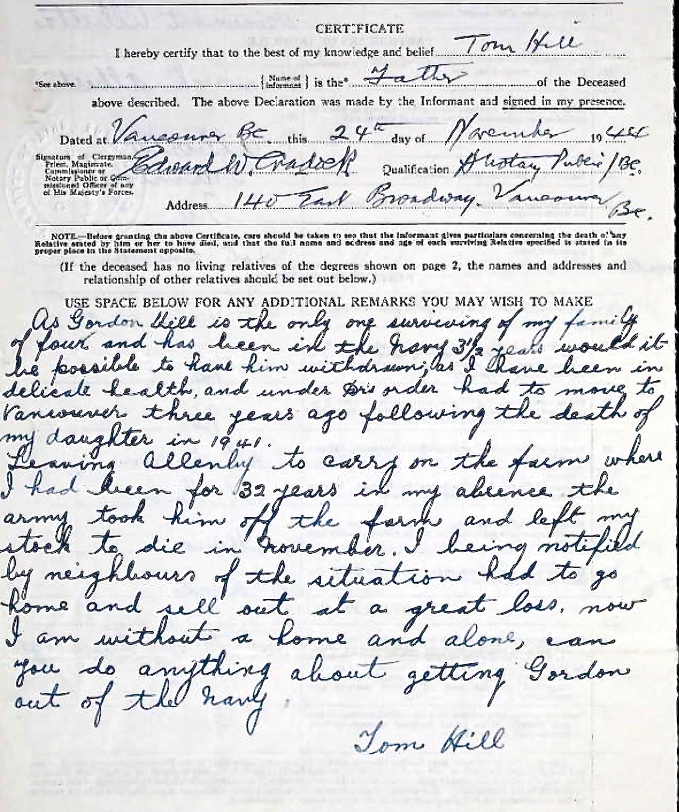 CERTIFICATE
I hereby certify that to the best of my knowledge and belief Tom Hill
*See above. {Name of Informant} is the* Father of the Deceased
above described. The above Declaration was made by the Informant and signed in my presence.
Dated at Vancouver BC this 24th day of November 1944
Signature of Clergyman, Priest, Magistrate, Commissioner or Notary Public or Commissioned Officer of any of His Majesty's Forces. Edward W. Cradock Qualification A Notary Public / BC.
Address 140 East Broadway. Vancouver BC.
NOTE.—Before granting the above Certificate, care should be taken to see that the Informant gives particulars concerning the death of any
Relative stated by him or her to have died, and that the full name and address and age of each surviving Relative specified is stated in its
proper place in the Statement opposite.
(If the deceased has no living relatives of the degrees shown on page 2, the names and addresses and
relationship of other relatives should be set out below.)
USE SPACE BELOW FOR ANY ADDITIONAL REMARKS YOU MAY WISH TO MAKE
As Gordon Hill is the only one surviving of my family
of four and has been in the Navy 3 1/2 years would it
be possible to have him withdrawn, as I have been in
delicate health, and under Drs order had to move to
Vancouver three years ago following the death of
my daughter in 1941.
Leaving Allenby to carry on the farm where
I had been for 32 years in my absence the
army took him off the farm and left my
stock to die in November. I being notified
by neighbours of the situation had to go
home and sell out at a great loss. now
I am without a home and alone, can
you do anything about getting Gordon
out of the Navy.
Tom Hill